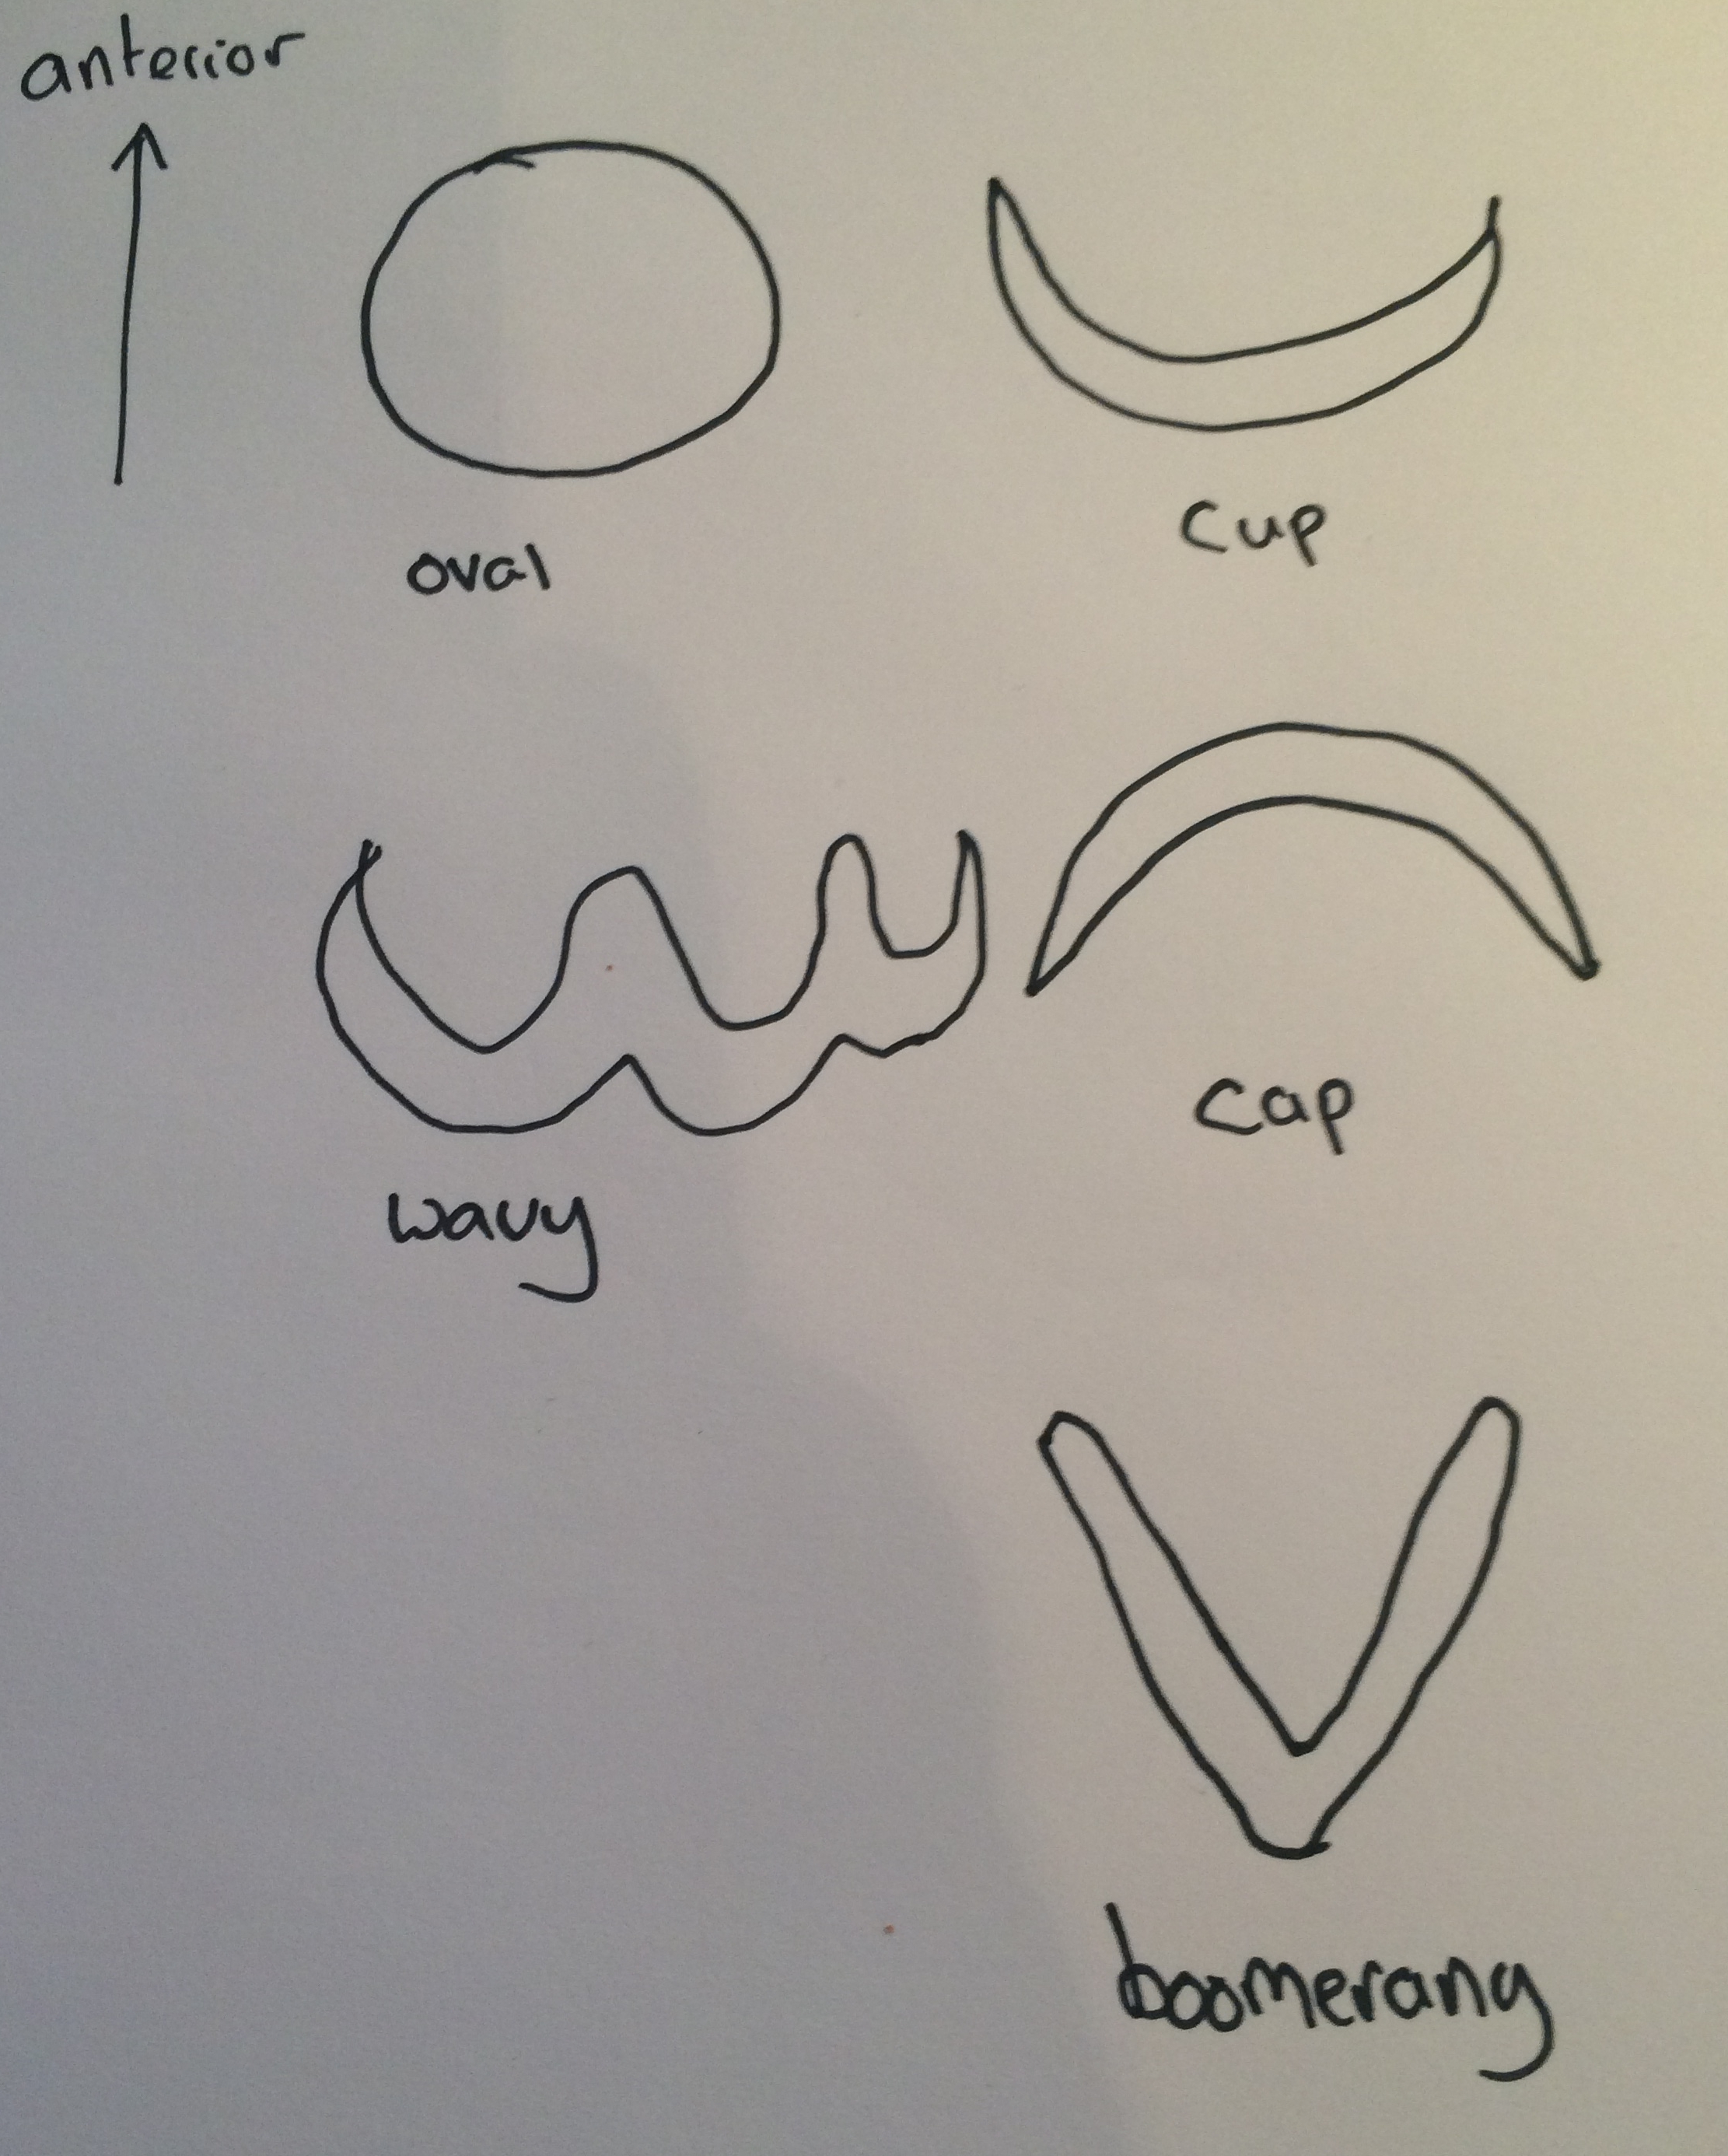 anterior
oval
cup
wavy
cap
boomerang